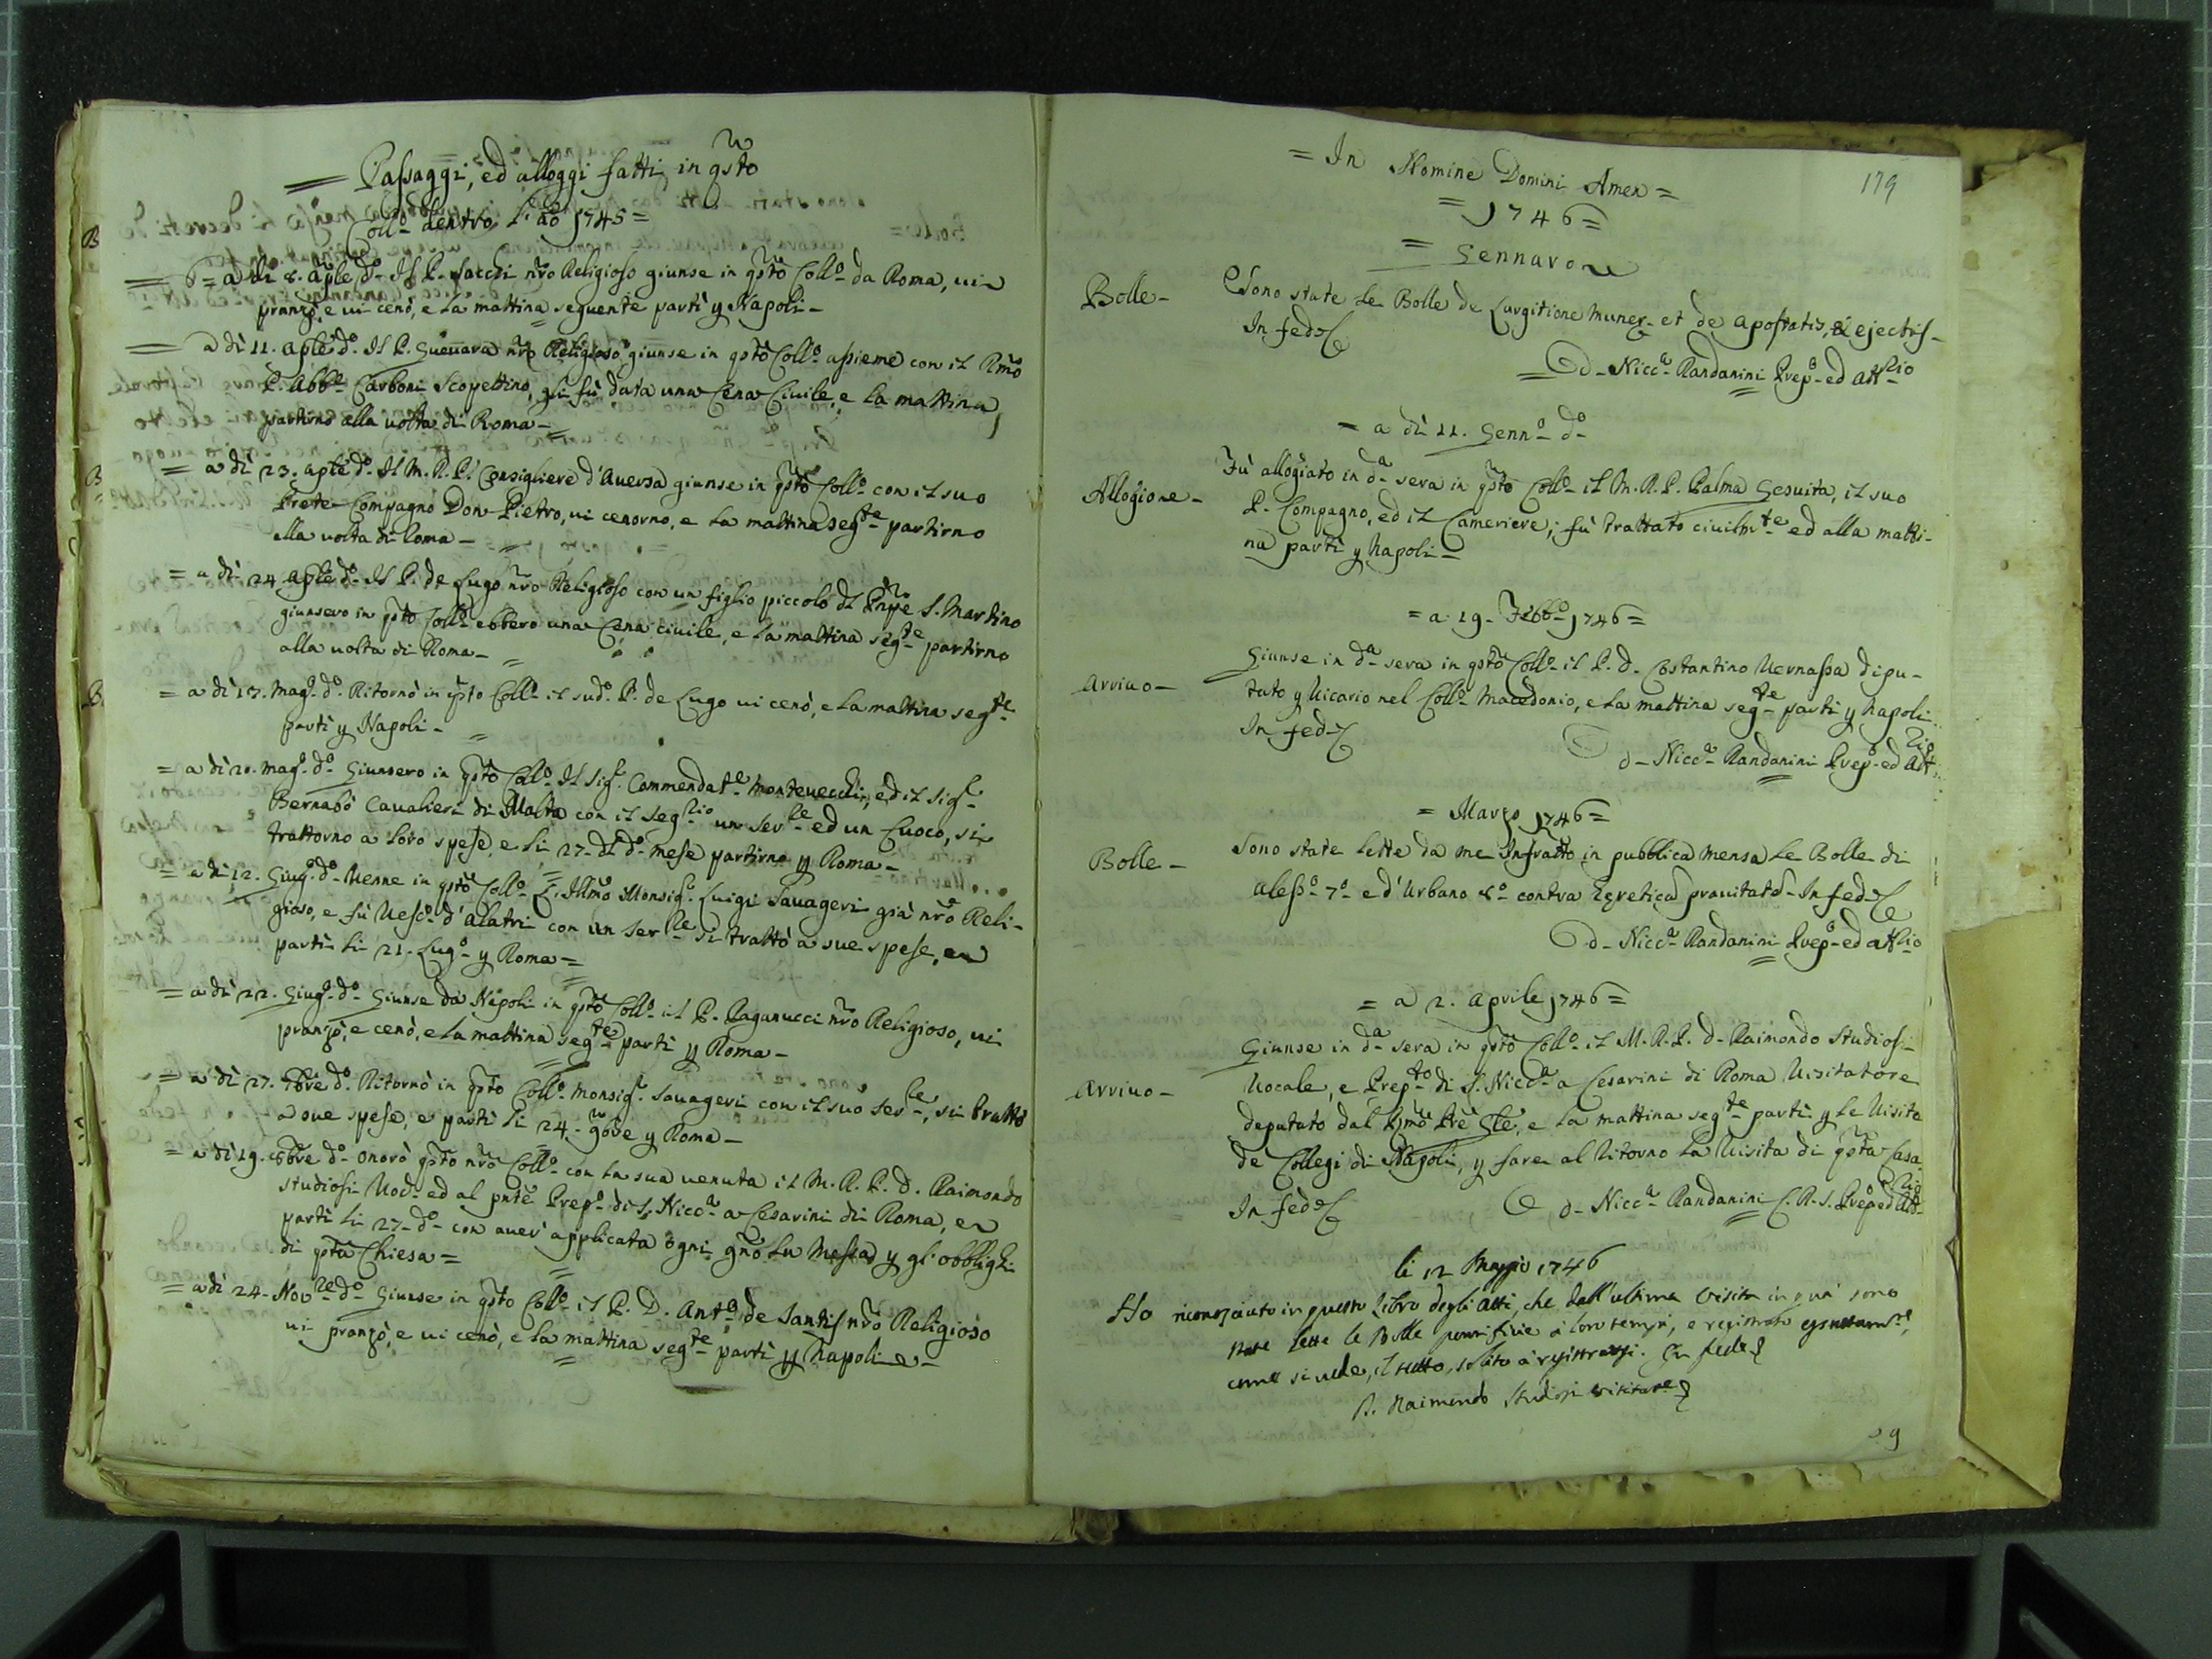 = Passaggi, ed alloggi fatti in qsto
Collo dentro l'ano 1745 =
= a dì 8. aple do Il P. Sacchi nro Religioso giunse in qsto Collo da Roma, ui
pranzò, e ui cenò, e la mattina seguente partì p Napoli -
= a dì 11. aple do Il P. Gueuara nro Religioso giunse in qsto Collo assieme con il Rmo
P. Abbe Carboni Scopettino, gli fù data una Cena Ciuile, e la mattina
partirno alla uolta di Roma -
= a dì 23. aple do Il M. R. P. Consigliere d'Auersa giunse in qsto Collo con il suo
Prete Compagno Don Pietro, ui cenorno, e la mattina segte partirno
alla uolta di Roma -
= a dì 24 aple do Il P. de Lugo nro Religioso con un figlio piccolo dl Pnpe S. Martino
giunsero in qsto Collo ebbero una Cena ciuile, e la mattina segte partirno
alla uolta di Roma -
= a dì 13. Mago do Ritornò in qsto Collo il sudo P. de Lugo ui cenò, e la mattina segte
partì p Napoli -
= a dì 20. Mago do Giunsero in qsto Collo Il Sigr Commendate Monteuecchi, ed il Sigr
Bernabò Caualieri di Malta con il Segrio un Serre ed un Cuoco, si
trattorno a loro spese, e li 27 - dl do mese partirno p Roma -
= a dì 12. Giugo do Uenne in qsto Collo L'Illmo Monsigr Luigi Sauageri già nro Reli-
gioso, e fù Uesco d'Alatri con un Serre si trattò a sue spese, e
partì li 21 - Lugo p Roma =
= a dì 22. Giugo do Giunse da Napoli in qsto Collo il P. Paganucci nro Religioso, ui
pranzò, e cenò, e la mattina segte partì p Roma -
= a dì 27. 7bre do Ritornò in qsto Collo Monsigr Sauageri con il suo Serre, si trattò
a sue spese, e partì li 24 - 9bre p Roma -
= a dì 19. 8bre do onorò qsto nro Collo con la sua uenuta il M. R. P. D. Raimondo
Studiosi Uoc. ed al pnte Prepo di S. Nicca a Cesarini di Roma, e
partì li 27 - do con auer applicata ogni gno la Messa p gl'obblighi
di qsta Chiesa =
= a dì 24 - Novre do Giunse in qsto Collo il P. D. Anto de Santis nro Religioso
ui pranzò, e ui cenò, e la mattina segte partì p Napoli -
179
= In Nomine Domini Amen =
= 1746 =
= Gennaro
Bolle - Sono state le Bolle de Largitione Muner. et de Apostatis, & ejectis -
In fede
D - Nicca Randanini Prepo ed Attrio
= a dì 11. Genno do
Allogione - Fù allogiato in da sera in qsto Collo il M. R. P. Palma Gesuita, il suo
P. Compagno, ed il Cameriere; fù trattato ciuilmte ed alla matti-
na partì p Napoli -
= a 19 - Febbo 1746 =
Arriuo - Giunse in da sera in qsto Collo il P. D. Costantino Uernassa dipu-
tato p Uicario nel Collo Macedonio, e la mattina segte partì p Napoli
In fede
D - Nicca Randanini Prepo ed Attrio
= Marzo 1746 =
Bolle - Sono state lette da me Infratto in pubblica mensa le Bolle di
Alesso 7o e d'Urbano 8o contra Egretica prauitate - In fede
D - Nicca Randanini Prepo ed Attrio
= a 2. Aprile 1746 =
Arriuo - Giunse in da sera in qsto Collo il M. R. P. D. Raimondo Studiosi
Uocale, e Prepto di S. Nicca a Cesarini di Roma Uisitatore
deputato dal Rmo Pre Gle, e la mattina segte partì p le Uisite
de Collegi di Napoli, p fare al Ritorno la Uisita di qsta Casa
In fede D - Nicca Randanini C. R. S. Prepo ed Attrio
li 12 Maggio 1746
Ho riconosciuto in questo Libro degli Atti, che dall'ultima Visita in quà sono
state lette le Bolle pontificie à loro tempi, e registrato
come si uede, il tutto, solito à registrarsi. In fede
D. Raimondo Studiosi Visitatore